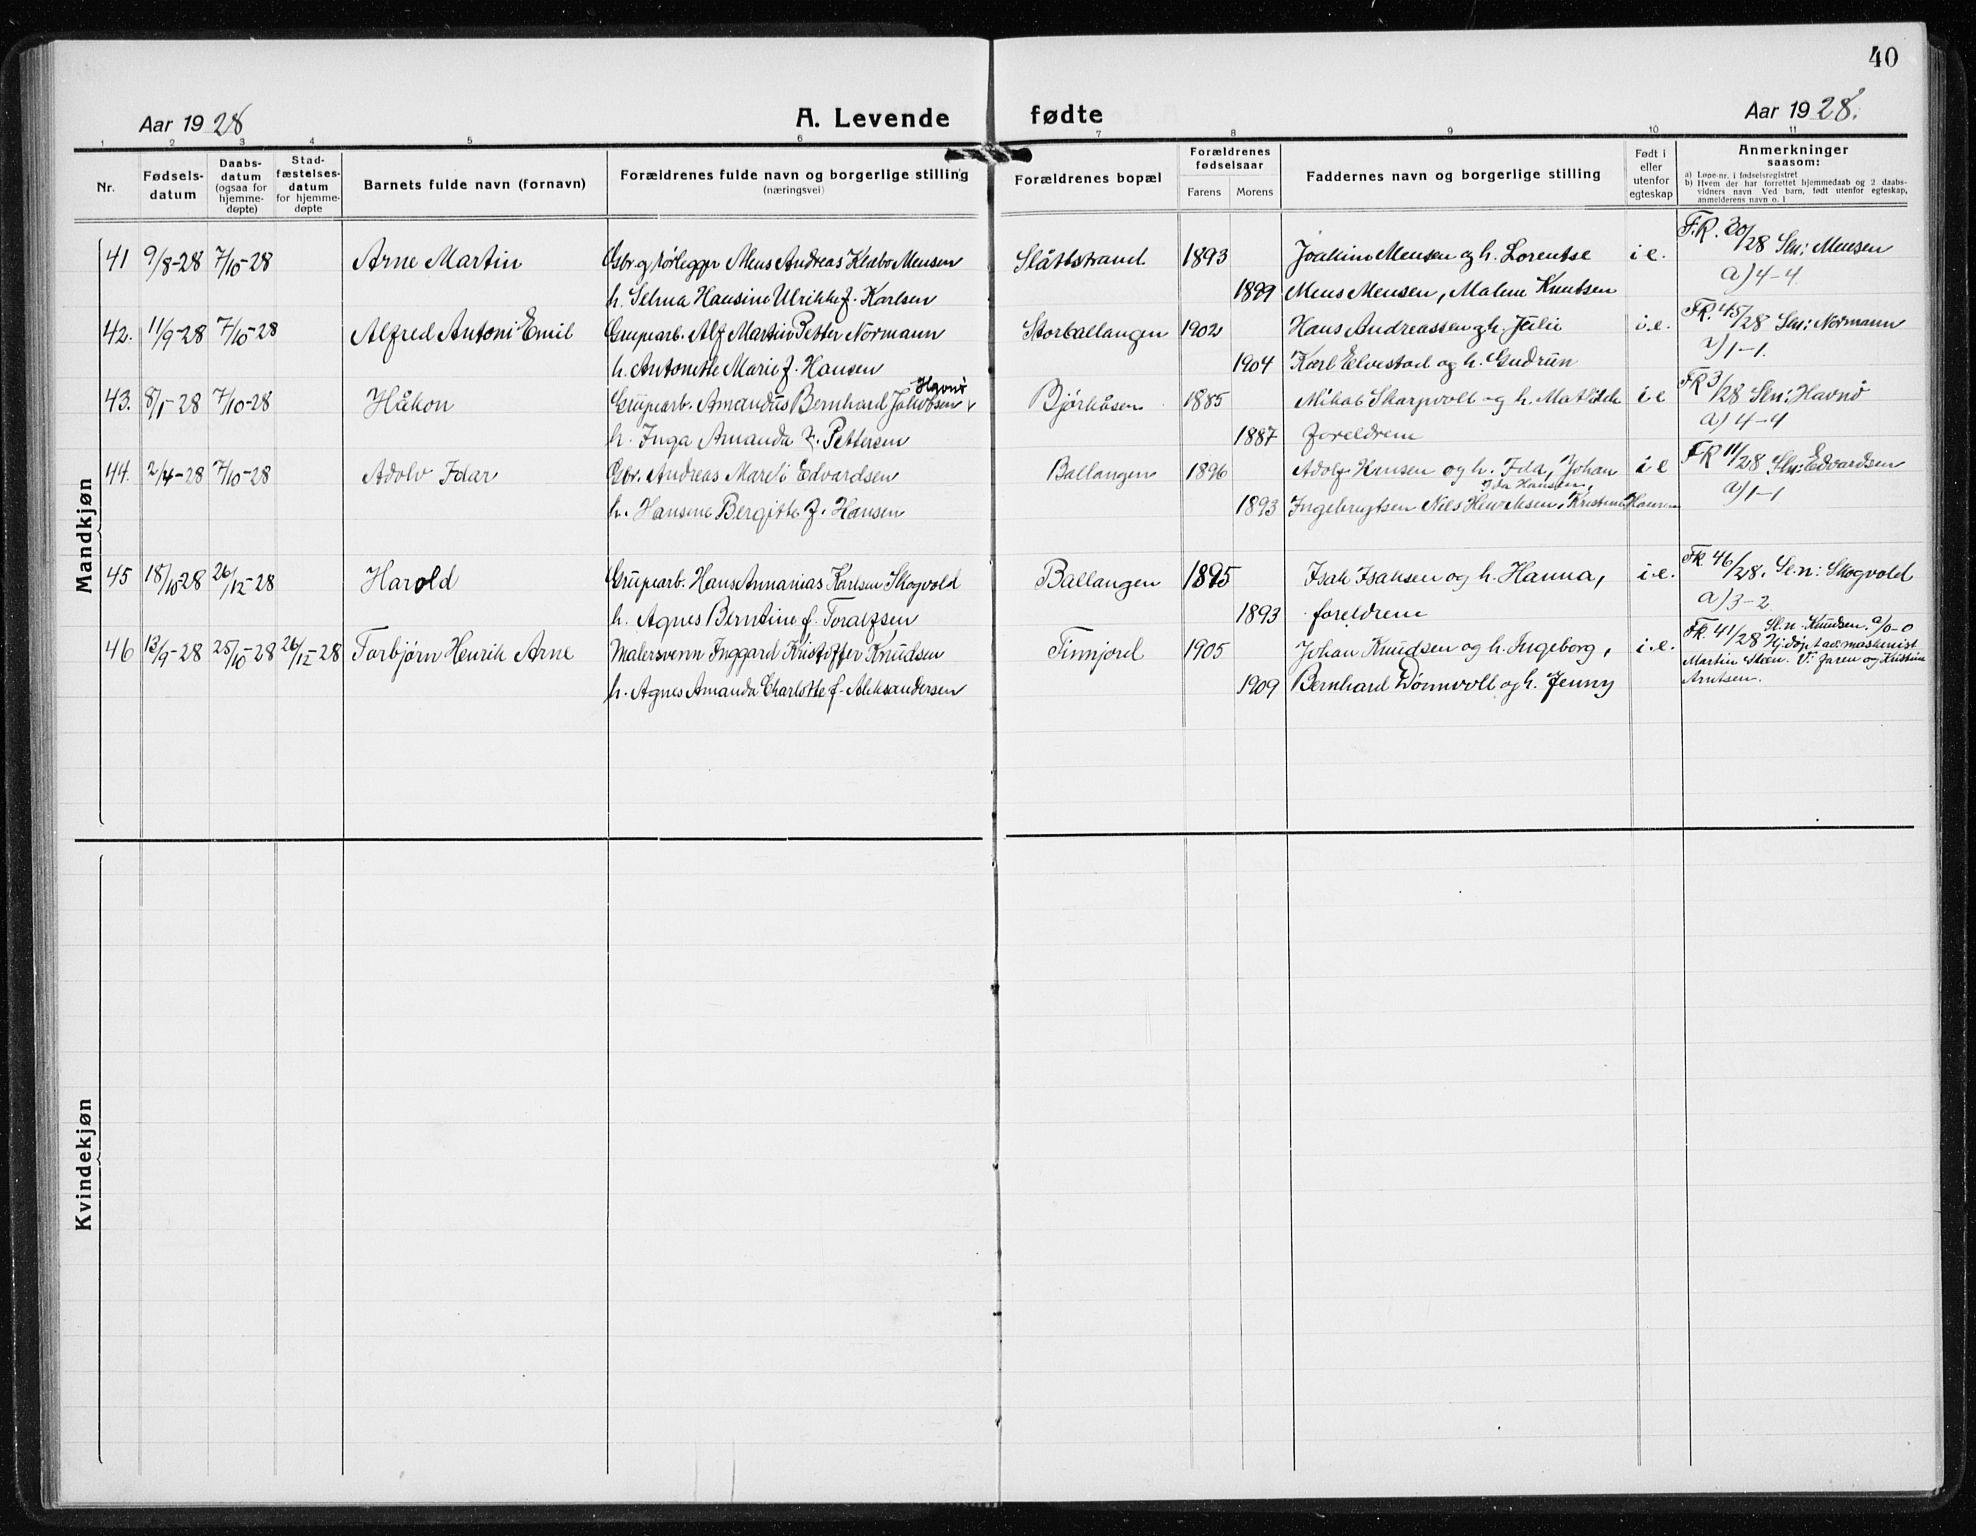 40
Aar 1928 A. Levende fødte Aar 1928.
1 2 3 4 5 6 7 8 9 10 11
Nr. Fødselsdatum Daabsdatum (ogsaa for hjemmedøpte) Stadfæstelsesdatum for hjemmedøpte Barnets fulde navn (fornavn) Forældrenes fulde navn og borgerlige stilling (næringsvei) Forældrenes bopæl Forældrenes fødselsaar Farens Morens Faddernes navn og borgerlige stilling Født i eller utenfor egteskap Anmerkninger saasom:
a) Løpe-nr. i fødselsregistret
b) Hvem der har forrettet hjemmedaab og 2 daabsvidners navn Ved barn, født utenfor egteskap, anmelderens navn o. l
Mandkjøn
41 9/8-28 7/10-28 Arne Martin Gbr. og rørlegger Mens Andreas Mensen Slåttstrand 1893 Joakim Mensen og h. Lorentse i e. F.R. 30/28 Sln: Mensen
h. Selma Hansine Ulrikke f. Karlsen 1899 Mens Mensen, Malene Knutsen a) 4-4.
42. 11/9-28 7/10-28 Alfred Antoni Emil Grupearb. Alf Martin Petter Normann Storballangen 1902 Hans Andreassen og h. Julie i.e. FR. 45/28 Sln: Normann
h. Antonette Marie f. Hansen 1904 Karl Elvestad og h. Gudrun a) 1-1.
43. 8/1-28 7/10-28 Håkon Grupearb. Amandus Bernhard Jakobsen Havnø Bjørkåsen 1885 Mikal Skarpvolt og h. Matilde i e FR 3/28 Sln: Havnø
h. Inga Amanda f. Pettersen 1887 foreldrene a) 4-4
44. 2/4-28 7/10-28 Adolv Idar Gbr. Andreas Mareli Edvardsen Ballangen 1896 Adolf Hansen og h. Ida, Johan i e FR 11/28 Sln: Edvardsen
h. Hansine Bergitte f. Hansen 1893 Ingebrigtsen Nils Henriksen, Ida Hansen, Kristine Hansen a) 1-1
45 18/10-28 26/12-28 Harold Grupearb. Hans Annanias Karlsen Skogvold Ballangen 1895 Isak Isaksen og h. Hanna, i.e. FR. 46/28. Sl.n: Skogvold
h. Agnes Berntine f. Toralfsen 1893 foreldrene a) 3-2
46 13/9-28 25/10-28 26/12-28 Torbjørn Henrik Arne Malersvenn Inggard Kristoffer Knudsen Finnjord 1905 Johan Knudsen og h. Ingeborg, i.e. FR. 41/28 Sl.n. Knudsen. a/0-0 Hj.døpt av maskinist
h. Agnes Amanda Charlotte f. Aleksandersen 1909 Bernhard Dønnvoll og h. Jenny Martin Steen. V: faren og Kristine Arntsen.
Kvindekjøn